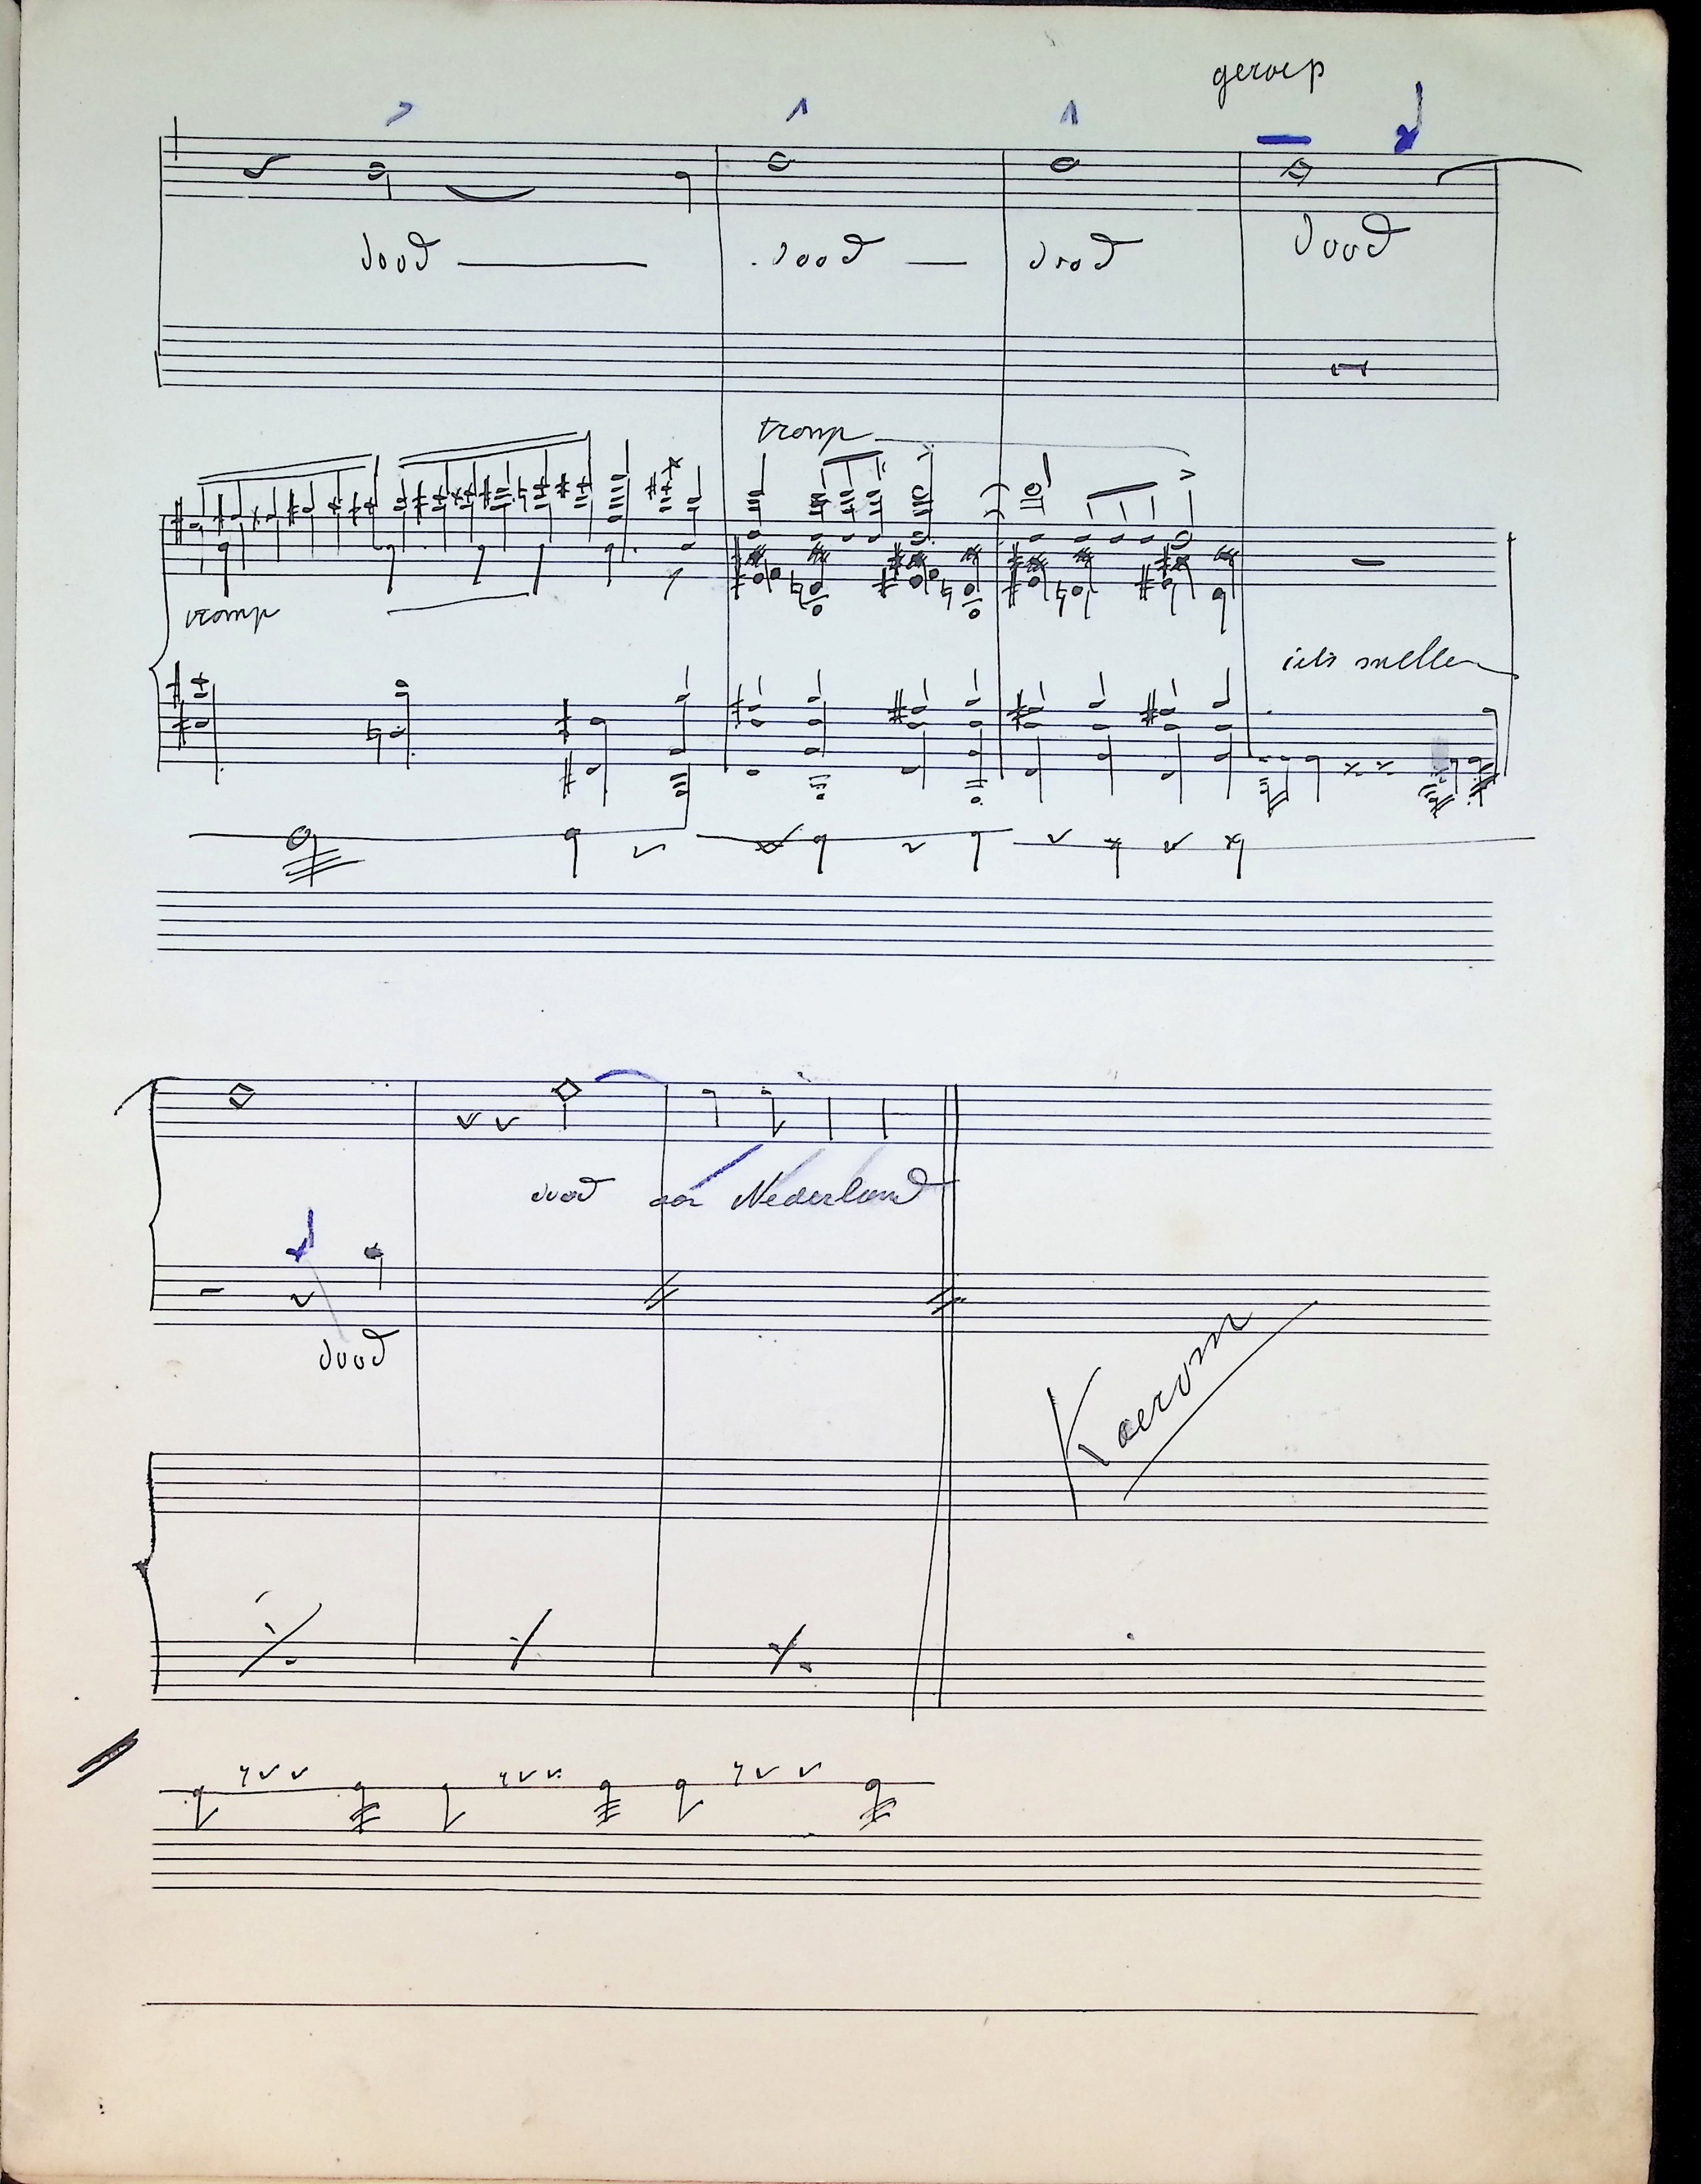 geroep
dood dood dood dood
tromp
tromp
iets sneller
dood aan Nederland
dood